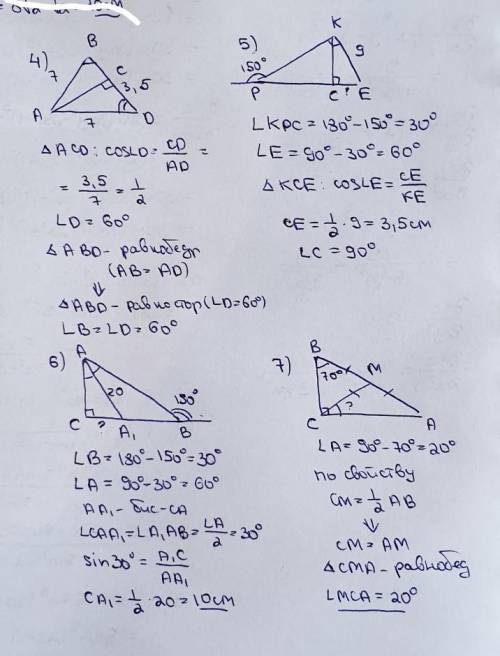 4)
B
7
C
3,5
A
7
D
△ACD: cos∠D = CD/AD =
= 3,5/7 = 1/2
∠D = 60°
△ABD - равнобедр
(AB = AD)
⇓
△ABD - равностор (∠D=60°)
∠B = ∠D = 60°
5)
K
150°
9
P
C
?
E
∠KPC = 180° - 150° = 30°
∠E = 90° - 30° = 60°
△KCE: cos∠E = CE/KE
CE = 1/2 · 9 = 3,5 см
∠C = 90°
6)
A
20
150°
C
?
A₁
B
∠B = 180° - 150° = 30°
∠A = 90° - 30° = 60°
AA₁ - бис-са
∠CAA₁ = ∠A₁AB = ∠A/2 = 30°
sin30° = A₁C/AA₁
CA₁ = 1/2 · 20 = 10см
7)
B
70°
M
C
?
A
∠A = 90° - 70° = 20°
по свойству
CM = 1/2 AB
⇓
CM = AM
△CMA - равнобед
∠MCA = 20°